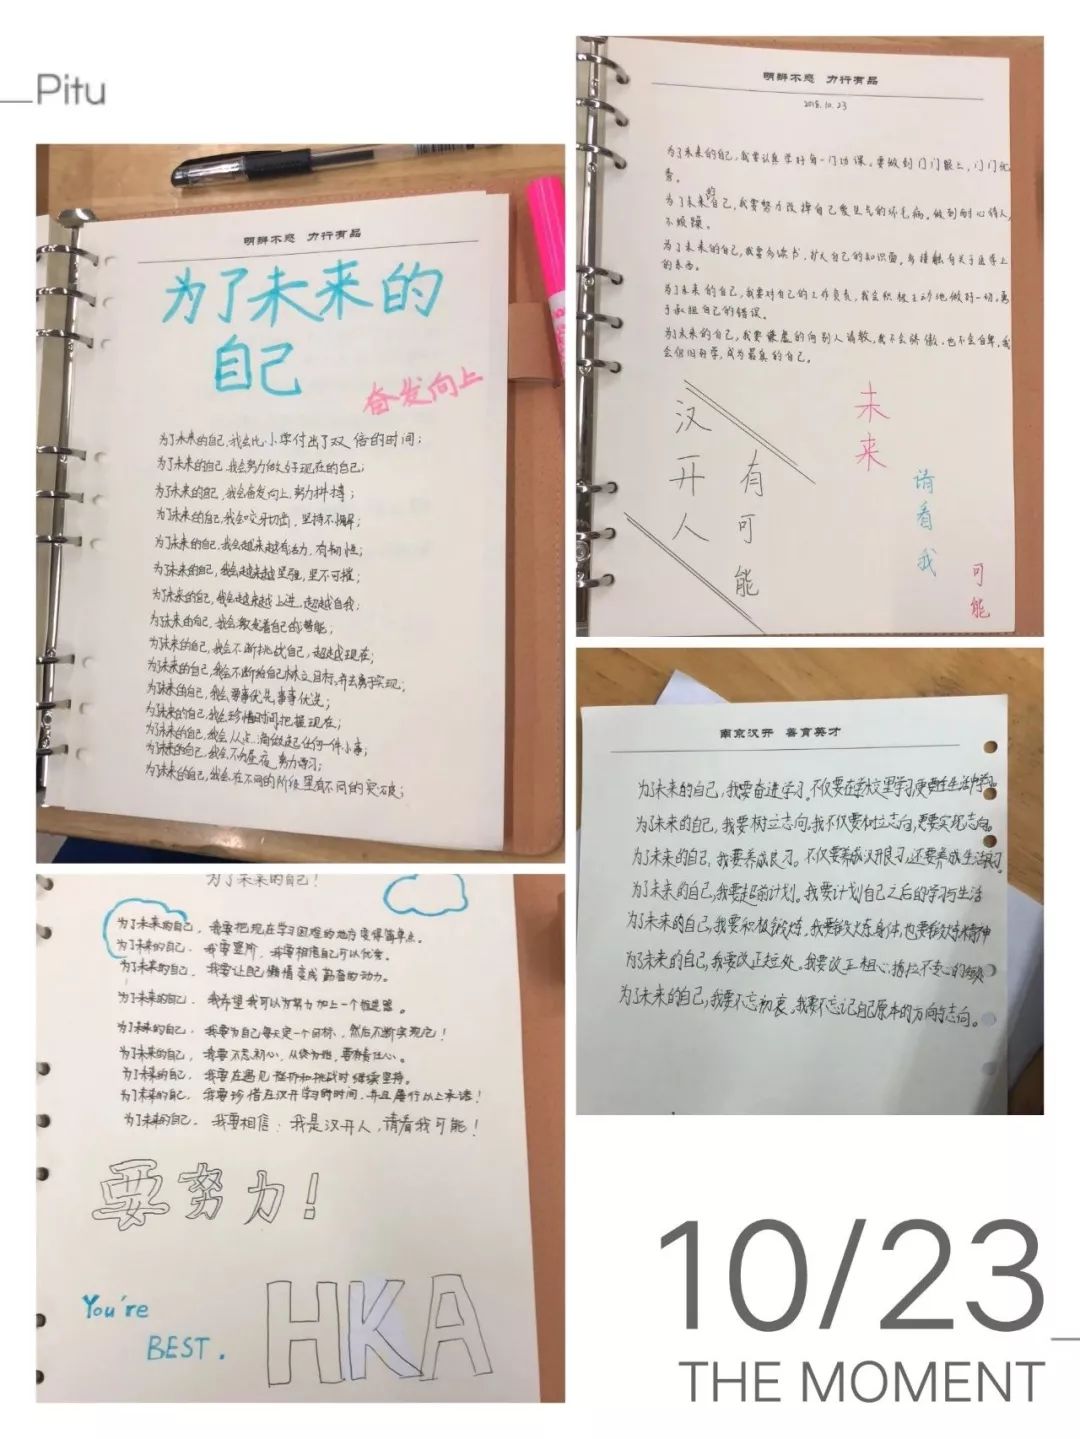 Pitu
明辨不惑 力行有品
为了未来的
自己
奋发向上
为了未来的自己,我会比小学付出了双倍的时间;
为了未来的自己,我会努力做好现在的自己;
为了未来的自己,我会奋发向上,努力拼搏;
为了未来的自己,我会咬牙切齿,坚持不懈;
为了未来的自己,我会越来越有活力,有韧性;
为了未来的自己,我会越来越坚强,坚不可摧;
为了未来的自己,我会越来越上进,超越自我;
为了未来的自己,我会激发着自己的潜能;
为了未来的自己,我会不断挑战自己,超越现在;
为了未来的自己,我会不断给自己树立目标,并去勇于实现;
为了未来的自己,我会要事优先,事事优先;
为了未来的自己,我会珍惜时间,把握现在;
为了未来的自己,我会从点滴做起任何一件小事;
为了未来的自己,我会不分昼夜,努力学习;
为了未来的自己,我会在不同的阶段里有不同的突破;
明辨不惑 力行有品
2018.10.23
为了未来的自己,我要认真学好每一门功课。要做到门门跟上,门门优
秀。
为了未来的自己,我要努力改掉自己爱生气的坏毛病。做到耐心待人,
不烦躁。
为了未来的自己,我要多读书,扩大自己的知识面,多接触有关于医学上
的东西。
为了未来的自己,我要对自己的工作负责,我会积极主动地做好一切。勇
于承担自己的错误。
为了未来的自己,我要谦虚的向别人请教,我不会骄傲,也不会自卑,我
会依旧好学,成为最真的自己。
汉开人
有可能
未来
请看我
可能
南京汉开 善育英才
为了未来的自己,我要奋进学习。不仅要在学校里学习,更要在生活中学习。
为了未来的自己,我要树立志向。我不仅要树立志向,更要实现志向。
为了未来的自己,我要养成良习。不仅要养成汉开良习,还要养成生活良习。
为了未来的自己,我要超前计划。我要计划自己之后的学习与生活
为了未来的自己,我要积极锻炼。我要锻炼身体,也要锻炼精神
为了未来的自己,我要改正短处。我要改正粗心,拖拉不专心的
为了未来的自己,我要不忘初衷。我要不忘记自己原本的方向与志向。
为了未来的自己!
为了未来的自己,我要把现在学习困难的地方变得简单点。
为了未来的自己,我要坚信,我要相信自己可以优秀。
为了未来的自己,我要让自己懒惰变成勤奋的动力。
为了未来的自己,我希望我可以为努力加上一个推进器。
为了未来的自己,我要为自己每天定一个目标,然后不断实现它!
为了未来的自己,我要不忘初心,从终为始,要有责任心。
为了未来的自己,我要在遇见挫折和挑战时继续坚持。
为了未来的自己,我要珍惜在汉开学习的时间,并且履行以上承诺!
为了未来的自己,我要相信:我是汉开人,请看我可能!
要努力!
You're
BEST.
HKA
10/23
THE MOMENT